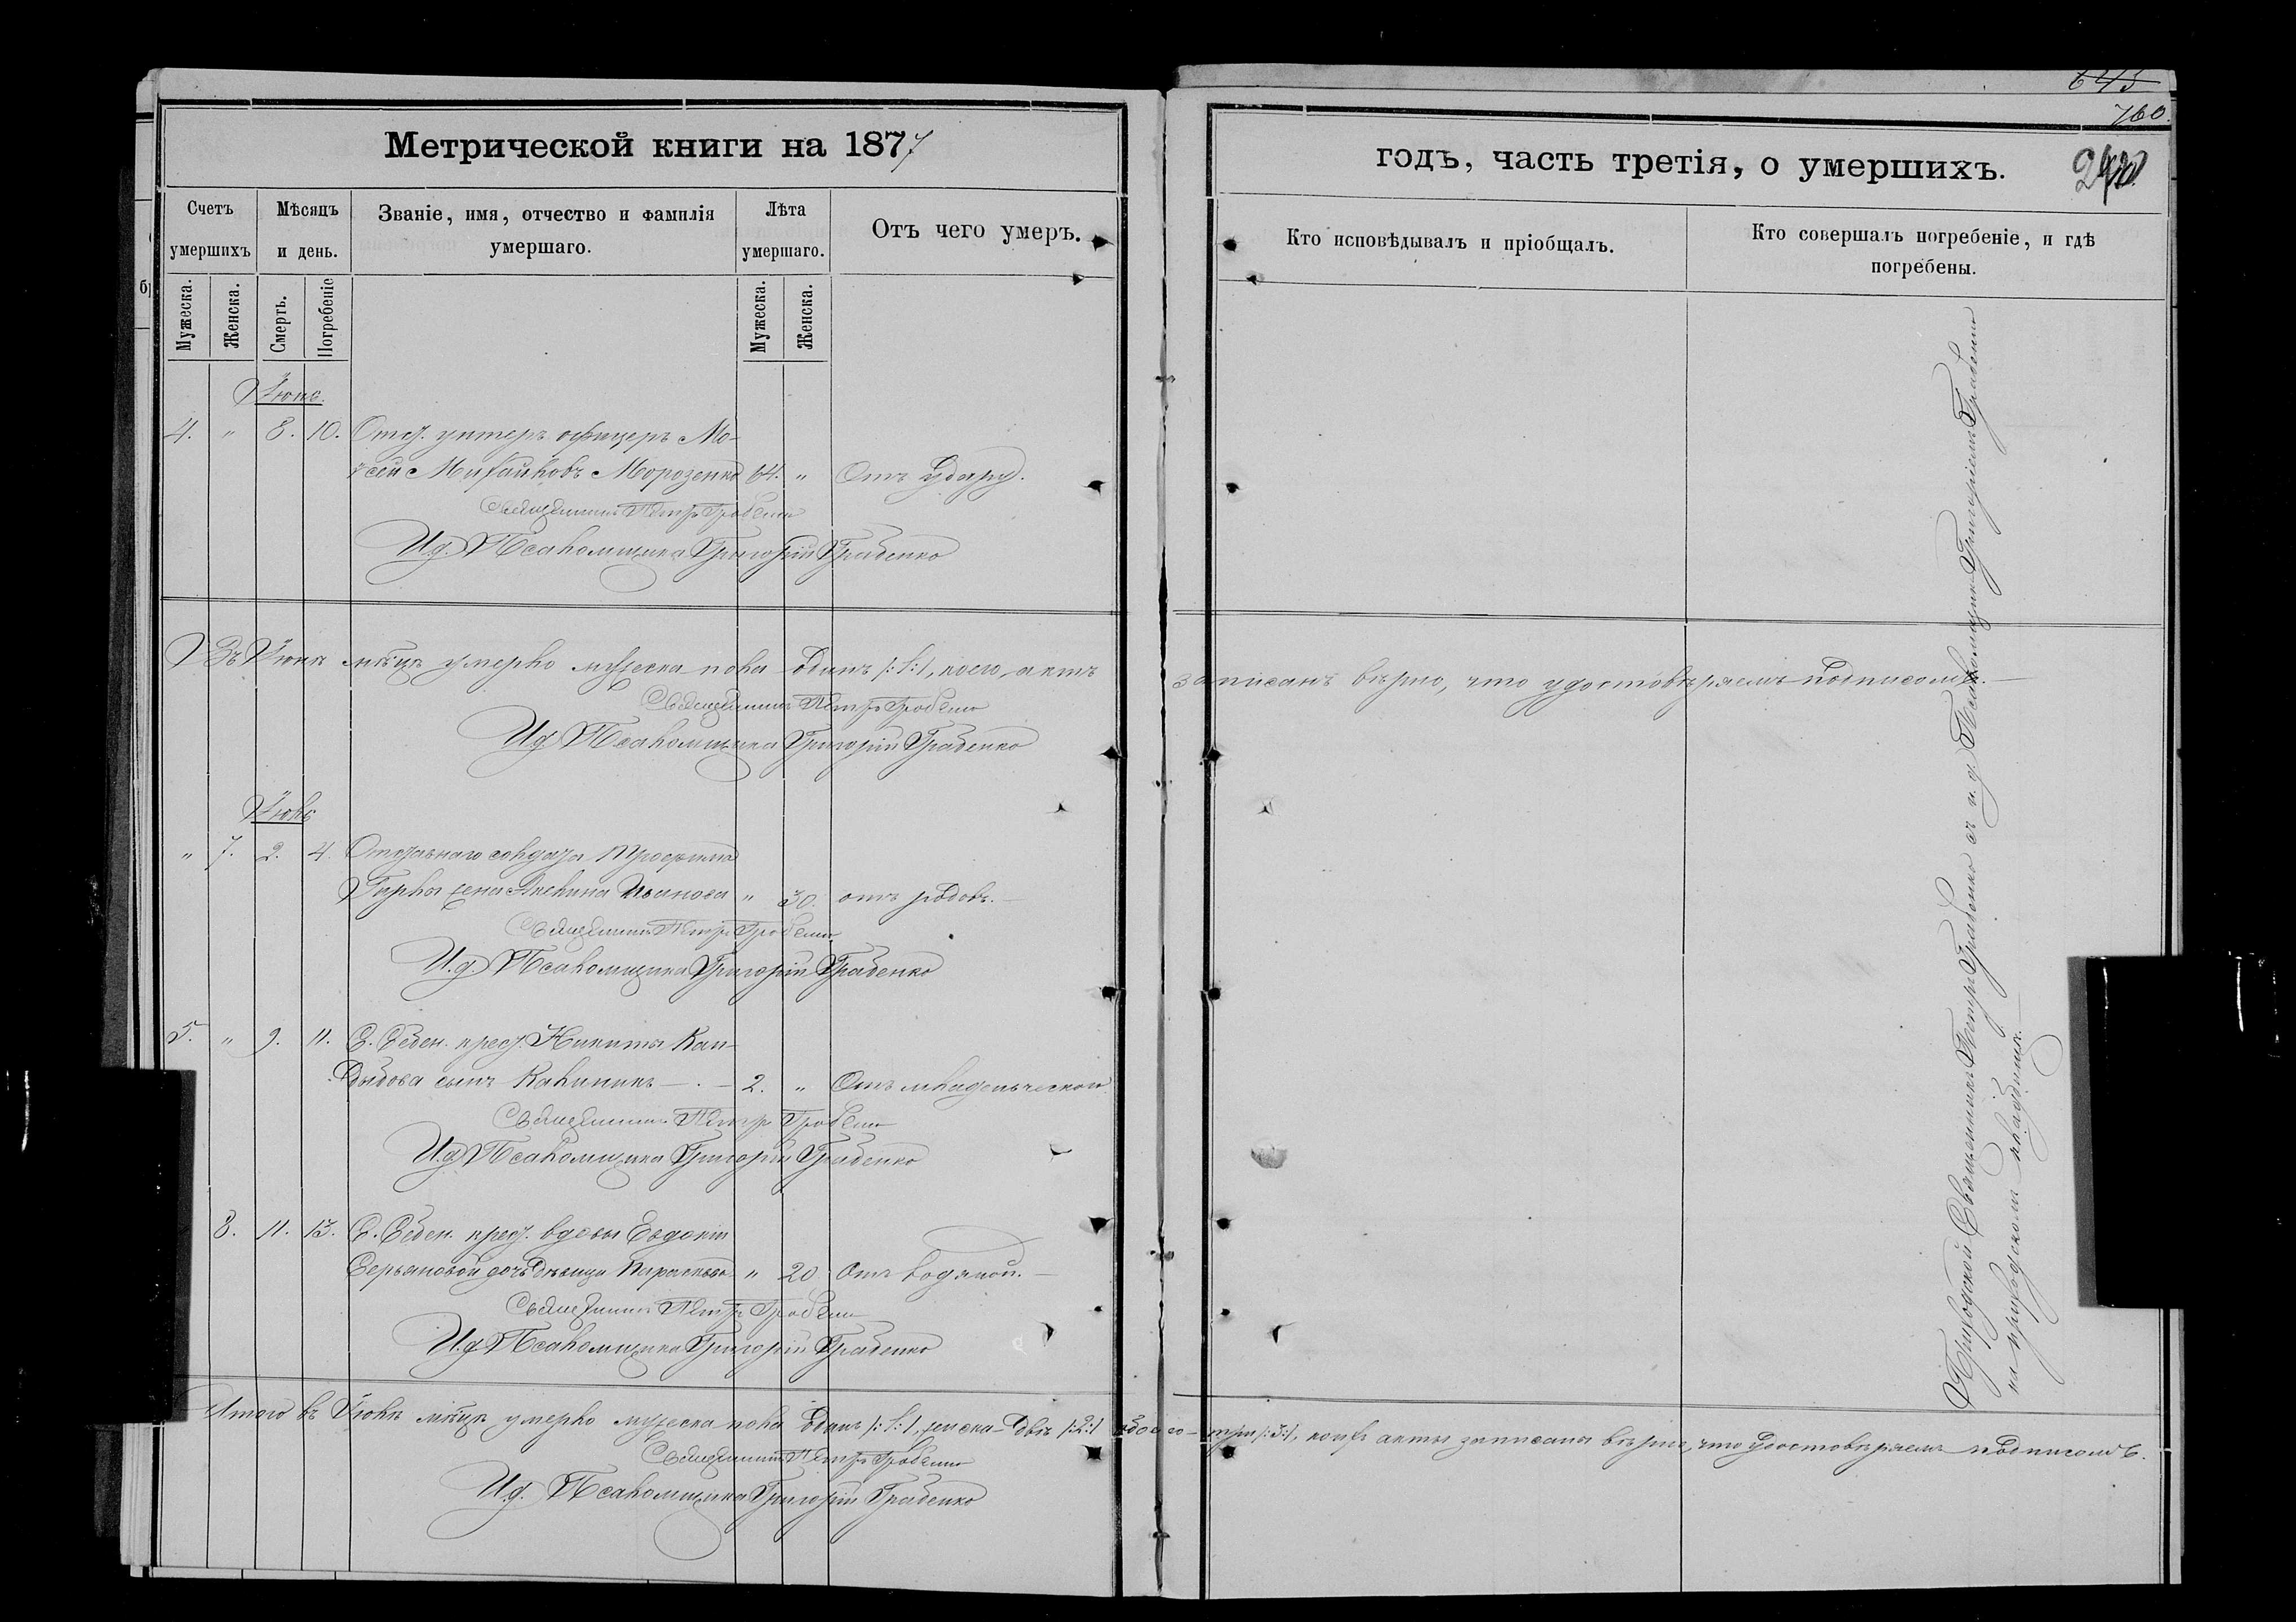 645
760.
Метрической книги на 1877
годъ, часть третія, о умершихъ.
Счетъ умершихъ
Мѣсяцъ и день.
Званіе, имя, отчество и фамилія умершаго.
Лѣта умершаго.
Отъ чего умеръ.
Кто исповѣдывалъ и пріобщалъ.
Кто совершалъ погребеніе, и гдѣ погребены.
Мужеска. Женска. Смерть. Погребеніе Мужеска. Женска.
Іюнь.
4. " 8. 10. Отст. унтеръ офицеръ Мо-
усей Михайловъ Морозенко 64. " Отъ удару.
Священникъ Петръ Грабенко
И.д. Псаломщика Григорій Грабенко
Въ Іюнѣ мѣцѣ умерло мужеска пола одинъ /:1:/, коего актъ записанъ вѣрно, что удостовѣряемъ подписомъ.
Священникъ Петръ Грабенко
И.д. Псаломщика Григорій Грабенко
Іюль
" 7. 2. 4. Отставнаго солдата Трофима
жена Акилина Иванова " 30. отъ родовъ.
Священникъ Петръ Грабенко
И.д. Псаломщика Григорій Грабенко
5. " 9. 11. С. Себен. крест. Никиты Кан-
дыбова сынъ Калиникъ 2. " Отъ младенческаго
Священникъ Петръ Грабенко
И.д. Псаломщика Григорій Грабенко
8. 11. 13. С. Себен. крест. вдовы Евдокіи
дочь дѣвица Параскева " 20 Отъ водяной.
Священникъ Петръ Грабенко
И.д. Псаломщика Григорій Грабенко
Итого въ Іюлѣ мѣцѣ умерло мужеска пола одинъ /:1:/, женска двѣ /:2:/ обоего три /:3:/, коихъ акты записаны вѣрно, что удостовѣряемъ подписомъ.
Священникъ Петръ Грабенко
И.д. Псаломщика Григорій Грабенко
Приходской Священникъ Петръ Грабенко съ и.д. Псаломщика Григоріемъ Грабенко
на приходскомъ кладбищѣ.